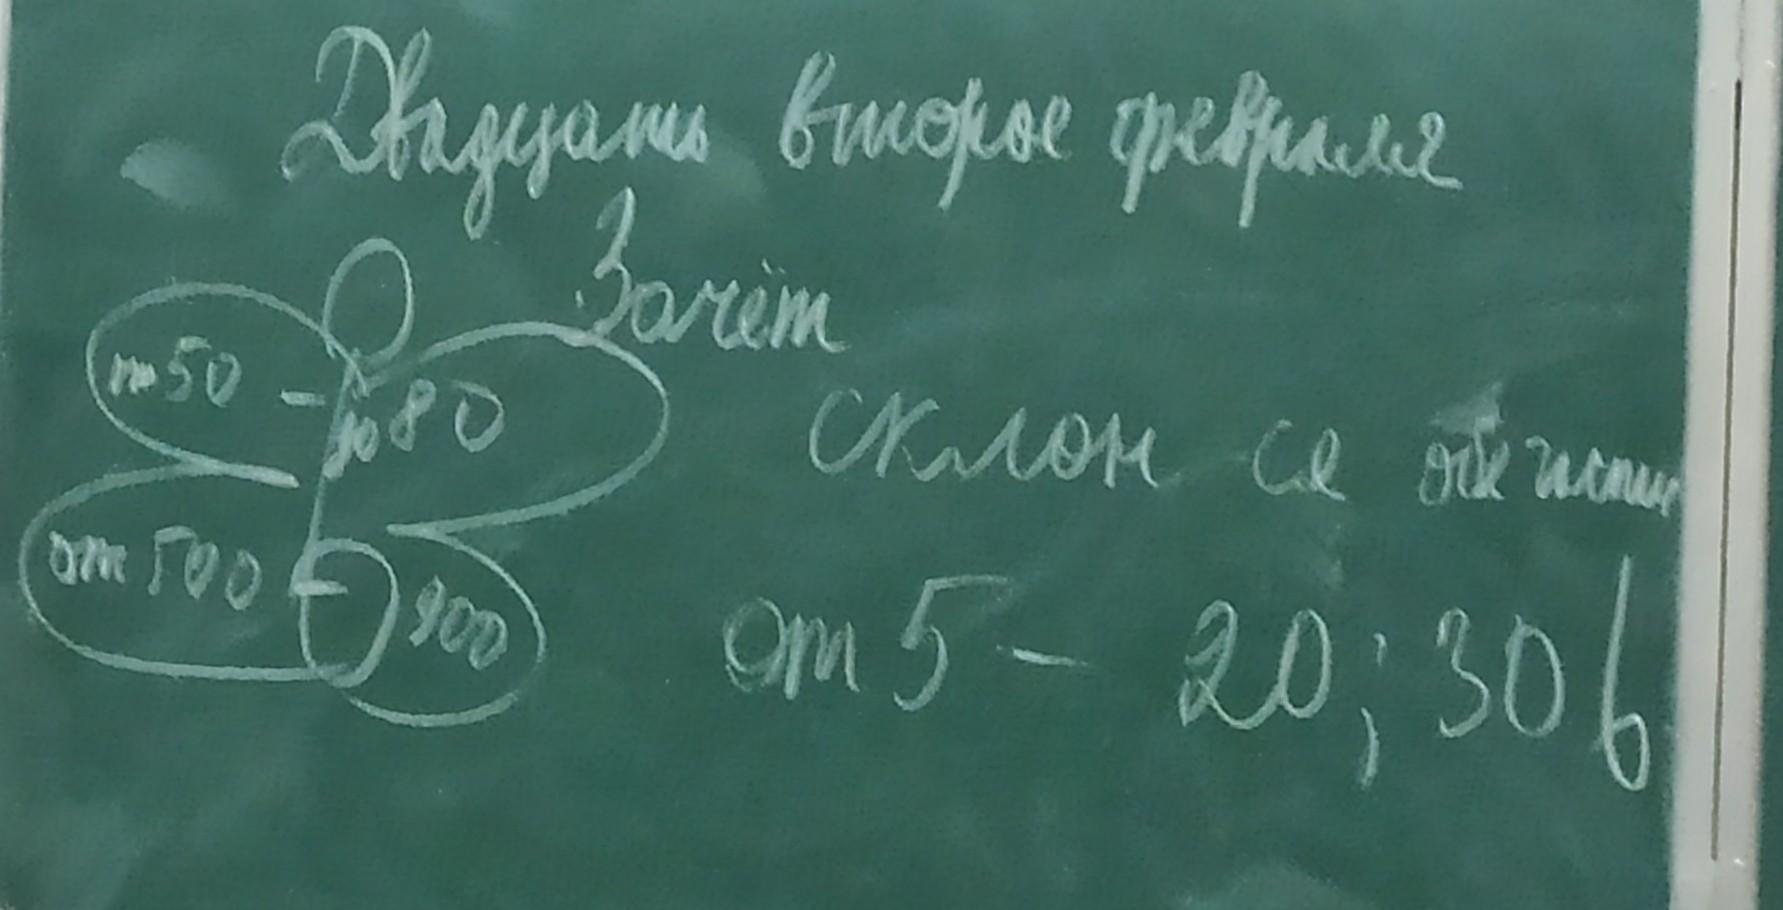 Двадцать второе февраля
Зачёт
от 50 – до 80
склон ся обе части
от 500 – 900
от 5 – 20; 30 ь